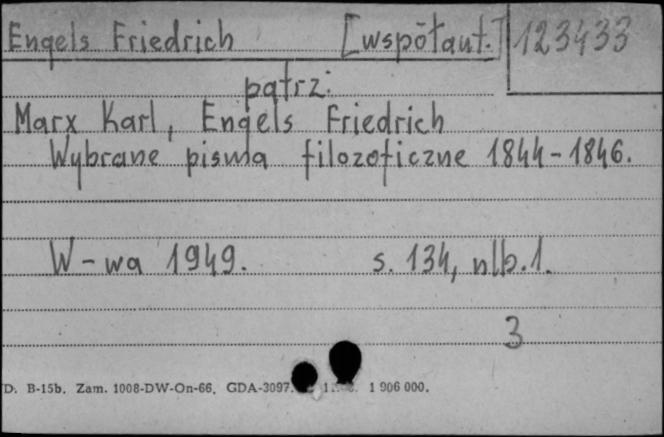 Engels Friedrich [współaut.] 123433
patrz:
Marx Karl, Engels Friedrich
Wybrane pisma filozoficzne 1844-1846.
W-wa 1949. s. 134, nlb.1.
3
D. B-15b. Zam. 1008-DW-On-66. GDA-3097. 1 906 000.